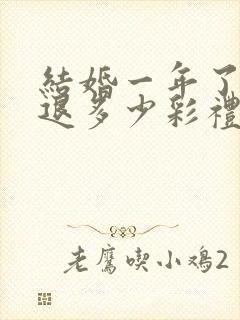 結婚一年了
退多少彩禮
老鷹喫小鸡2